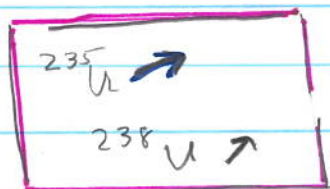 ²³⁵U
²³⁸U